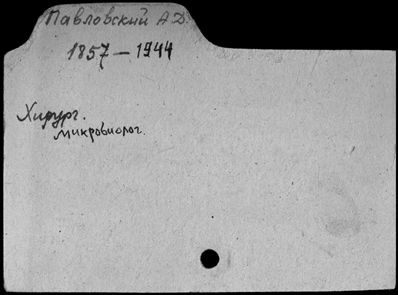 Павловский А.Д.
1857 – 1944
Хирург.
микробиолог.